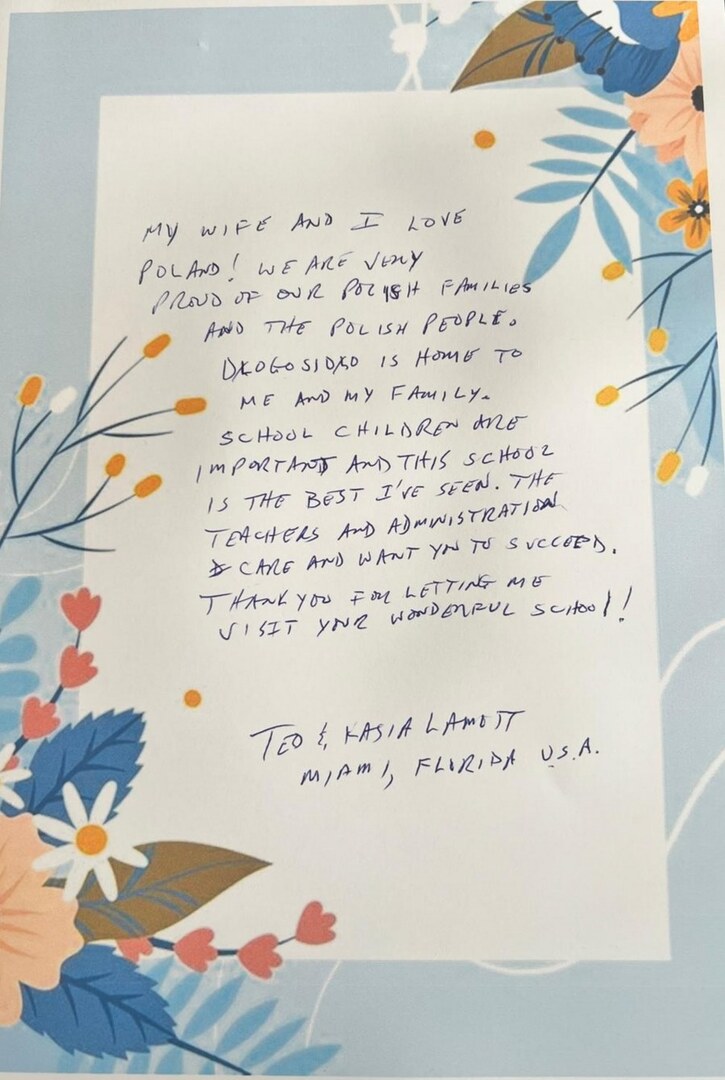 MY WIFE AND I LOVE
POLAND! WE ARE VERY
PROUD OF OUR POLISH FAMILIES
AND THE POLISH PEOPLE.
IS HOME TO
ME AND MY FAMILY.
SCHOOL CHILDREN ARE
IMPORTANT AND THIS SCHOOL
IS THE BEST I'VE SEEN. THE
TEACHERS AND ADMINISTRATION
CARE AND WANT YOU TO SUCCEED.
THANK YOU FOR LETTING ME
VISIT YOUR WONDERFUL SCHOOL!
TED & KASIA
MIAMI, FLORIDA U.S.A.